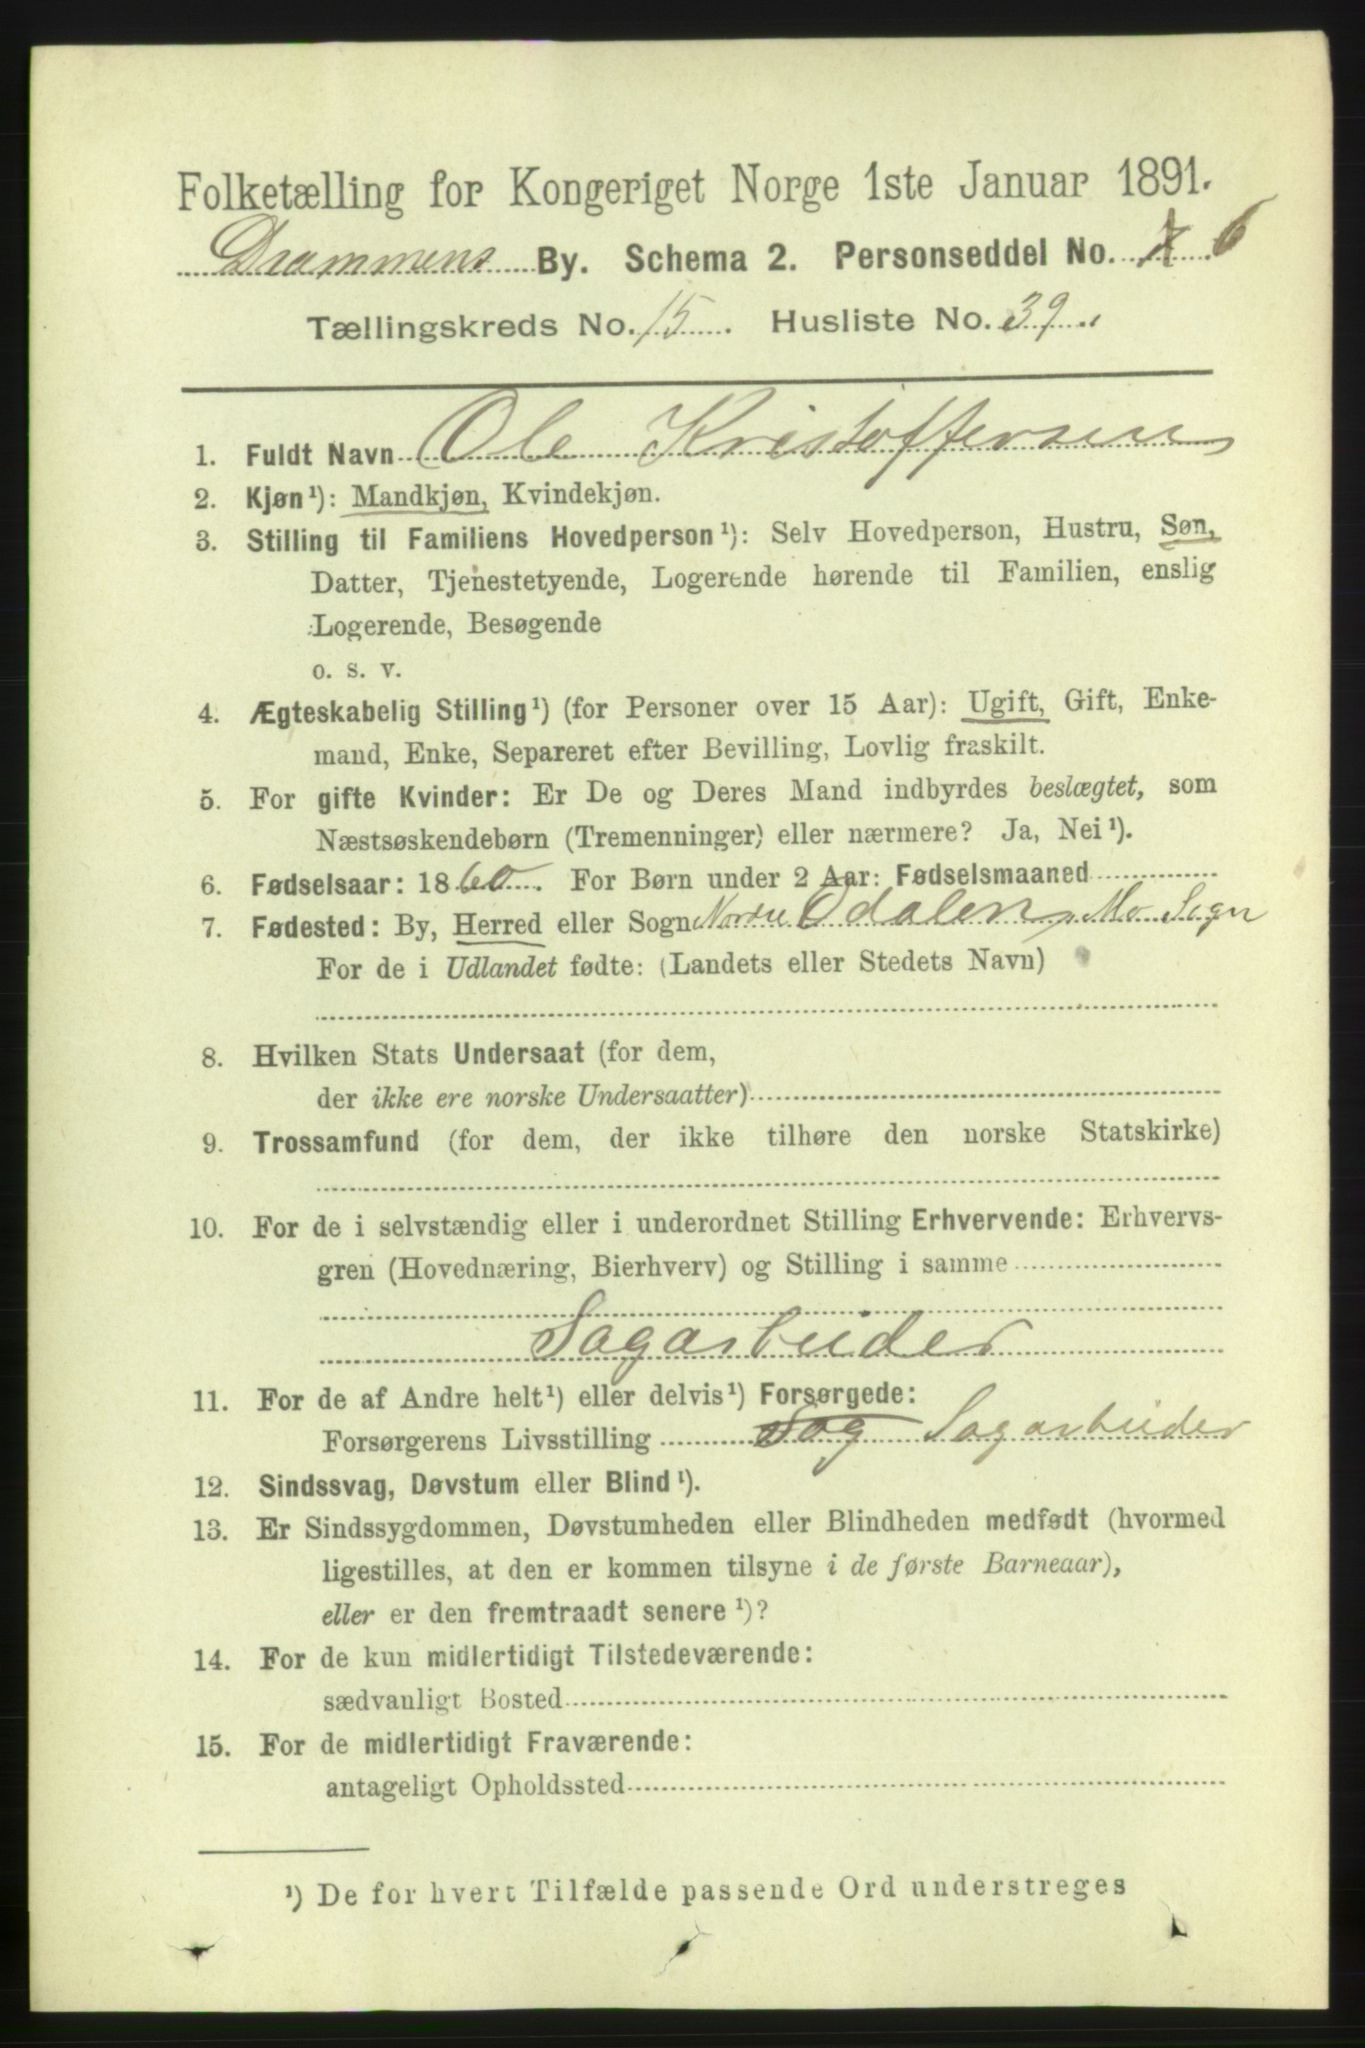 Folketælling for Kongeriget Norge 1ste Januar 1891.
Drammens By. Schema 2. Personseddel No. 6
Tællingskreds No. 15. Husliste No. 39.
1. Fuldt Navn Ole Kristoffersen
2. Kjøn¹): Mandkjøn, Kvindekjøn.
3. Stilling til Familiens Hovedperson¹): Selv Hovedperson, Hustru, Søn,
Datter, Tjenestetyende, Logerende hørende til Familien, enslig
Logerende, Besøgende
o. s. v.
4. Ægteskabelig Stilling¹) (for Personer over 15 Aar): Ugift, Gift, Enke-
mand, Enke, Separeret efter Bevilling, Lovlig fraskilt.
5. For gifte Kvinder: Er De og Deres Mand indbyrdes beslægtet, som
Næstsøskendebørn (Tremenninger) eller nærmere? Ja, Nei¹).
6. Fødselsaar: 1860. For Børn under 2 Aar: Fødselsmaaned
7. Fødested: By, Herred eller Sogn Nordre Odalen, Mo Sogn
For de i Udlandet fødte: (Landets eller Stedets Navn)
8. Hvilken Stats Undersaat (for dem,
der ikke ere norske Undersaatter)
9. Trossamfund (for dem, der ikke tilhøre den norske Statskirke)
10. For de i selvstændig eller i underordnet Stilling Erhvervende: Erhvervs-
gren (Hovednæring, Bierhverv) og Stilling i samme
Sagarbeider
11. For de af Andre helt¹) eller delvis¹) Forsørgede:
Forsørgerens Livsstilling Sag Sagarbeider
12. Sindssvag, Døvstum eller Blind¹).
13. Er Sindssygdommen, Døvstumheden eller Blindheden medfødt (hvormed
ligestilles, at den er kommen tilsyne i de første Barneaar),
eller er den fremtraadt senere¹)?
14. For de kun midlertidigt Tilstedeværende:
sædvanligt Bosted
15. For de midlertidigt Fraværende:
antageligt Opholdssted
¹) De for hvert Tilfælde passende Ord understreges